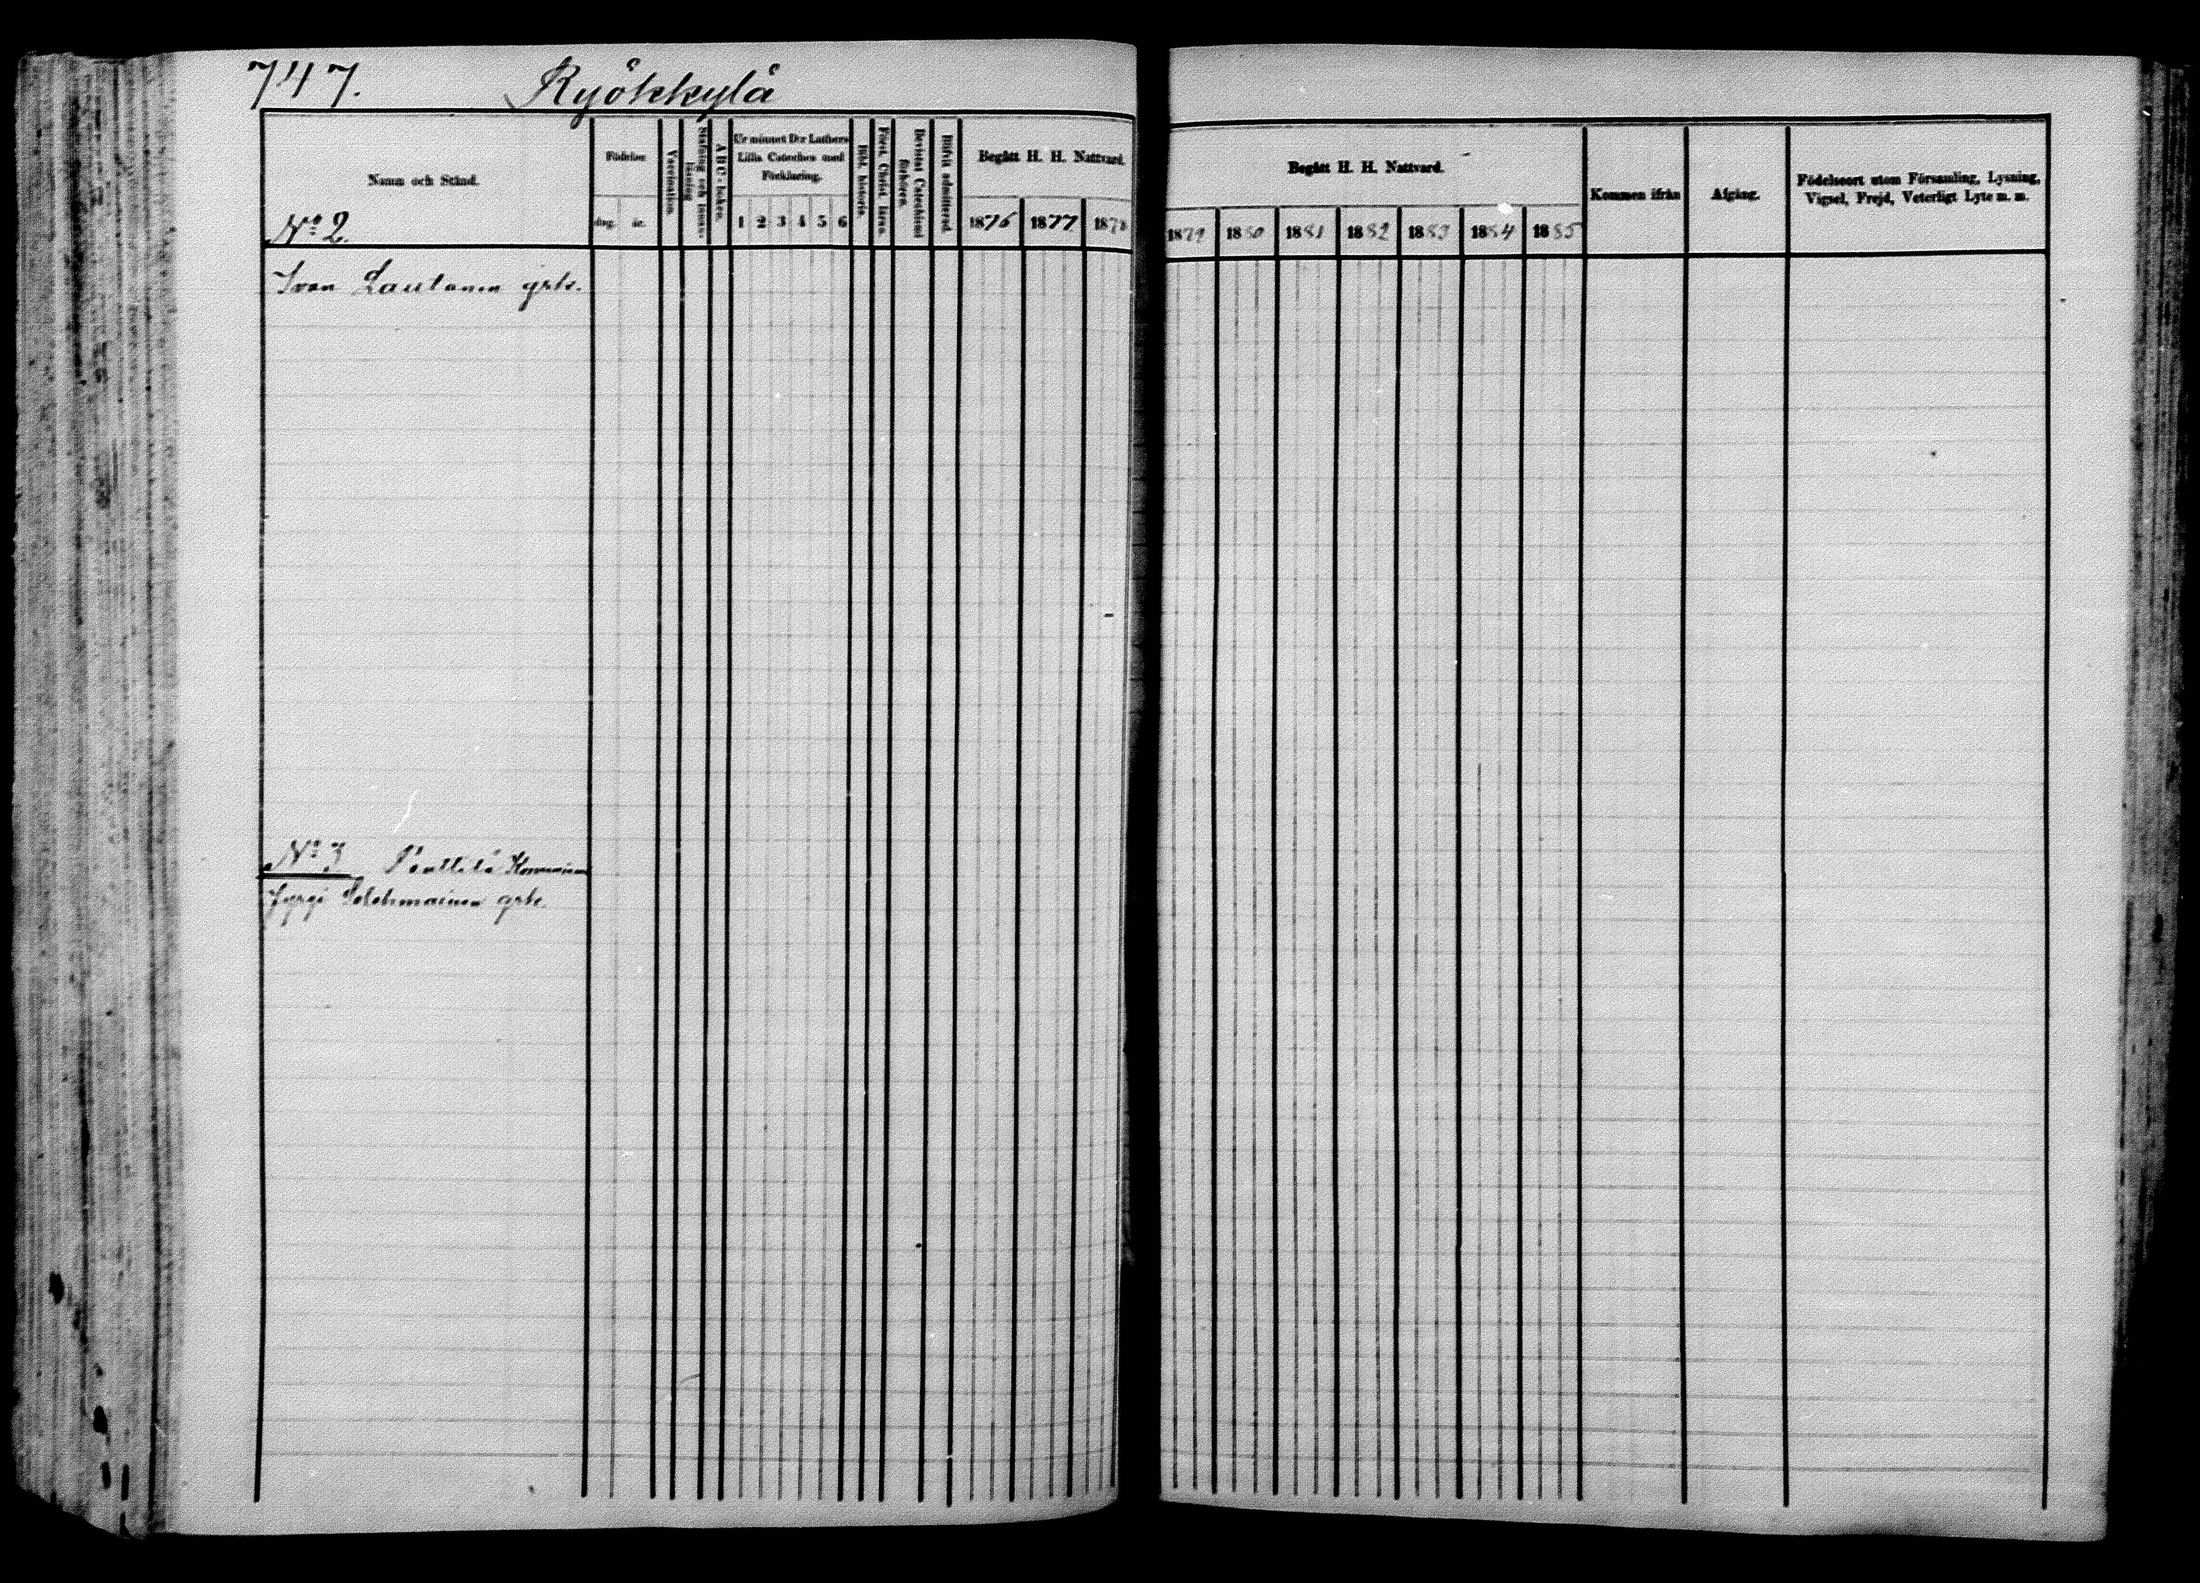 747. Ryökkylä
Namn och Stånd.
Födelse
dag. år.
Vaccination.
Stafning och innanläsning
ABC-boken.
Ur minnet D:r Luthers
Lilla Cateches med
Förklaring.
1 2 3 4 5 6
Bibl. historia.
Först. Christ. läran.
Bevistat Catechismi
förhören.
Blifvit admitterad.
Begått H. H. Nattvard.
1876 1877 1878
Begått H. H. Nattvard.
1879 1880 1881 1882 1883 1884 1885
Kommen ifrån
Afgång.
Födelseort utom Församling, Lysning,
Vigsel, Frejd, Veterligt Lyte m. m.
No 2.
Ivan Lautanen grk.
No 3 Penttilä
Jyrgi grk.